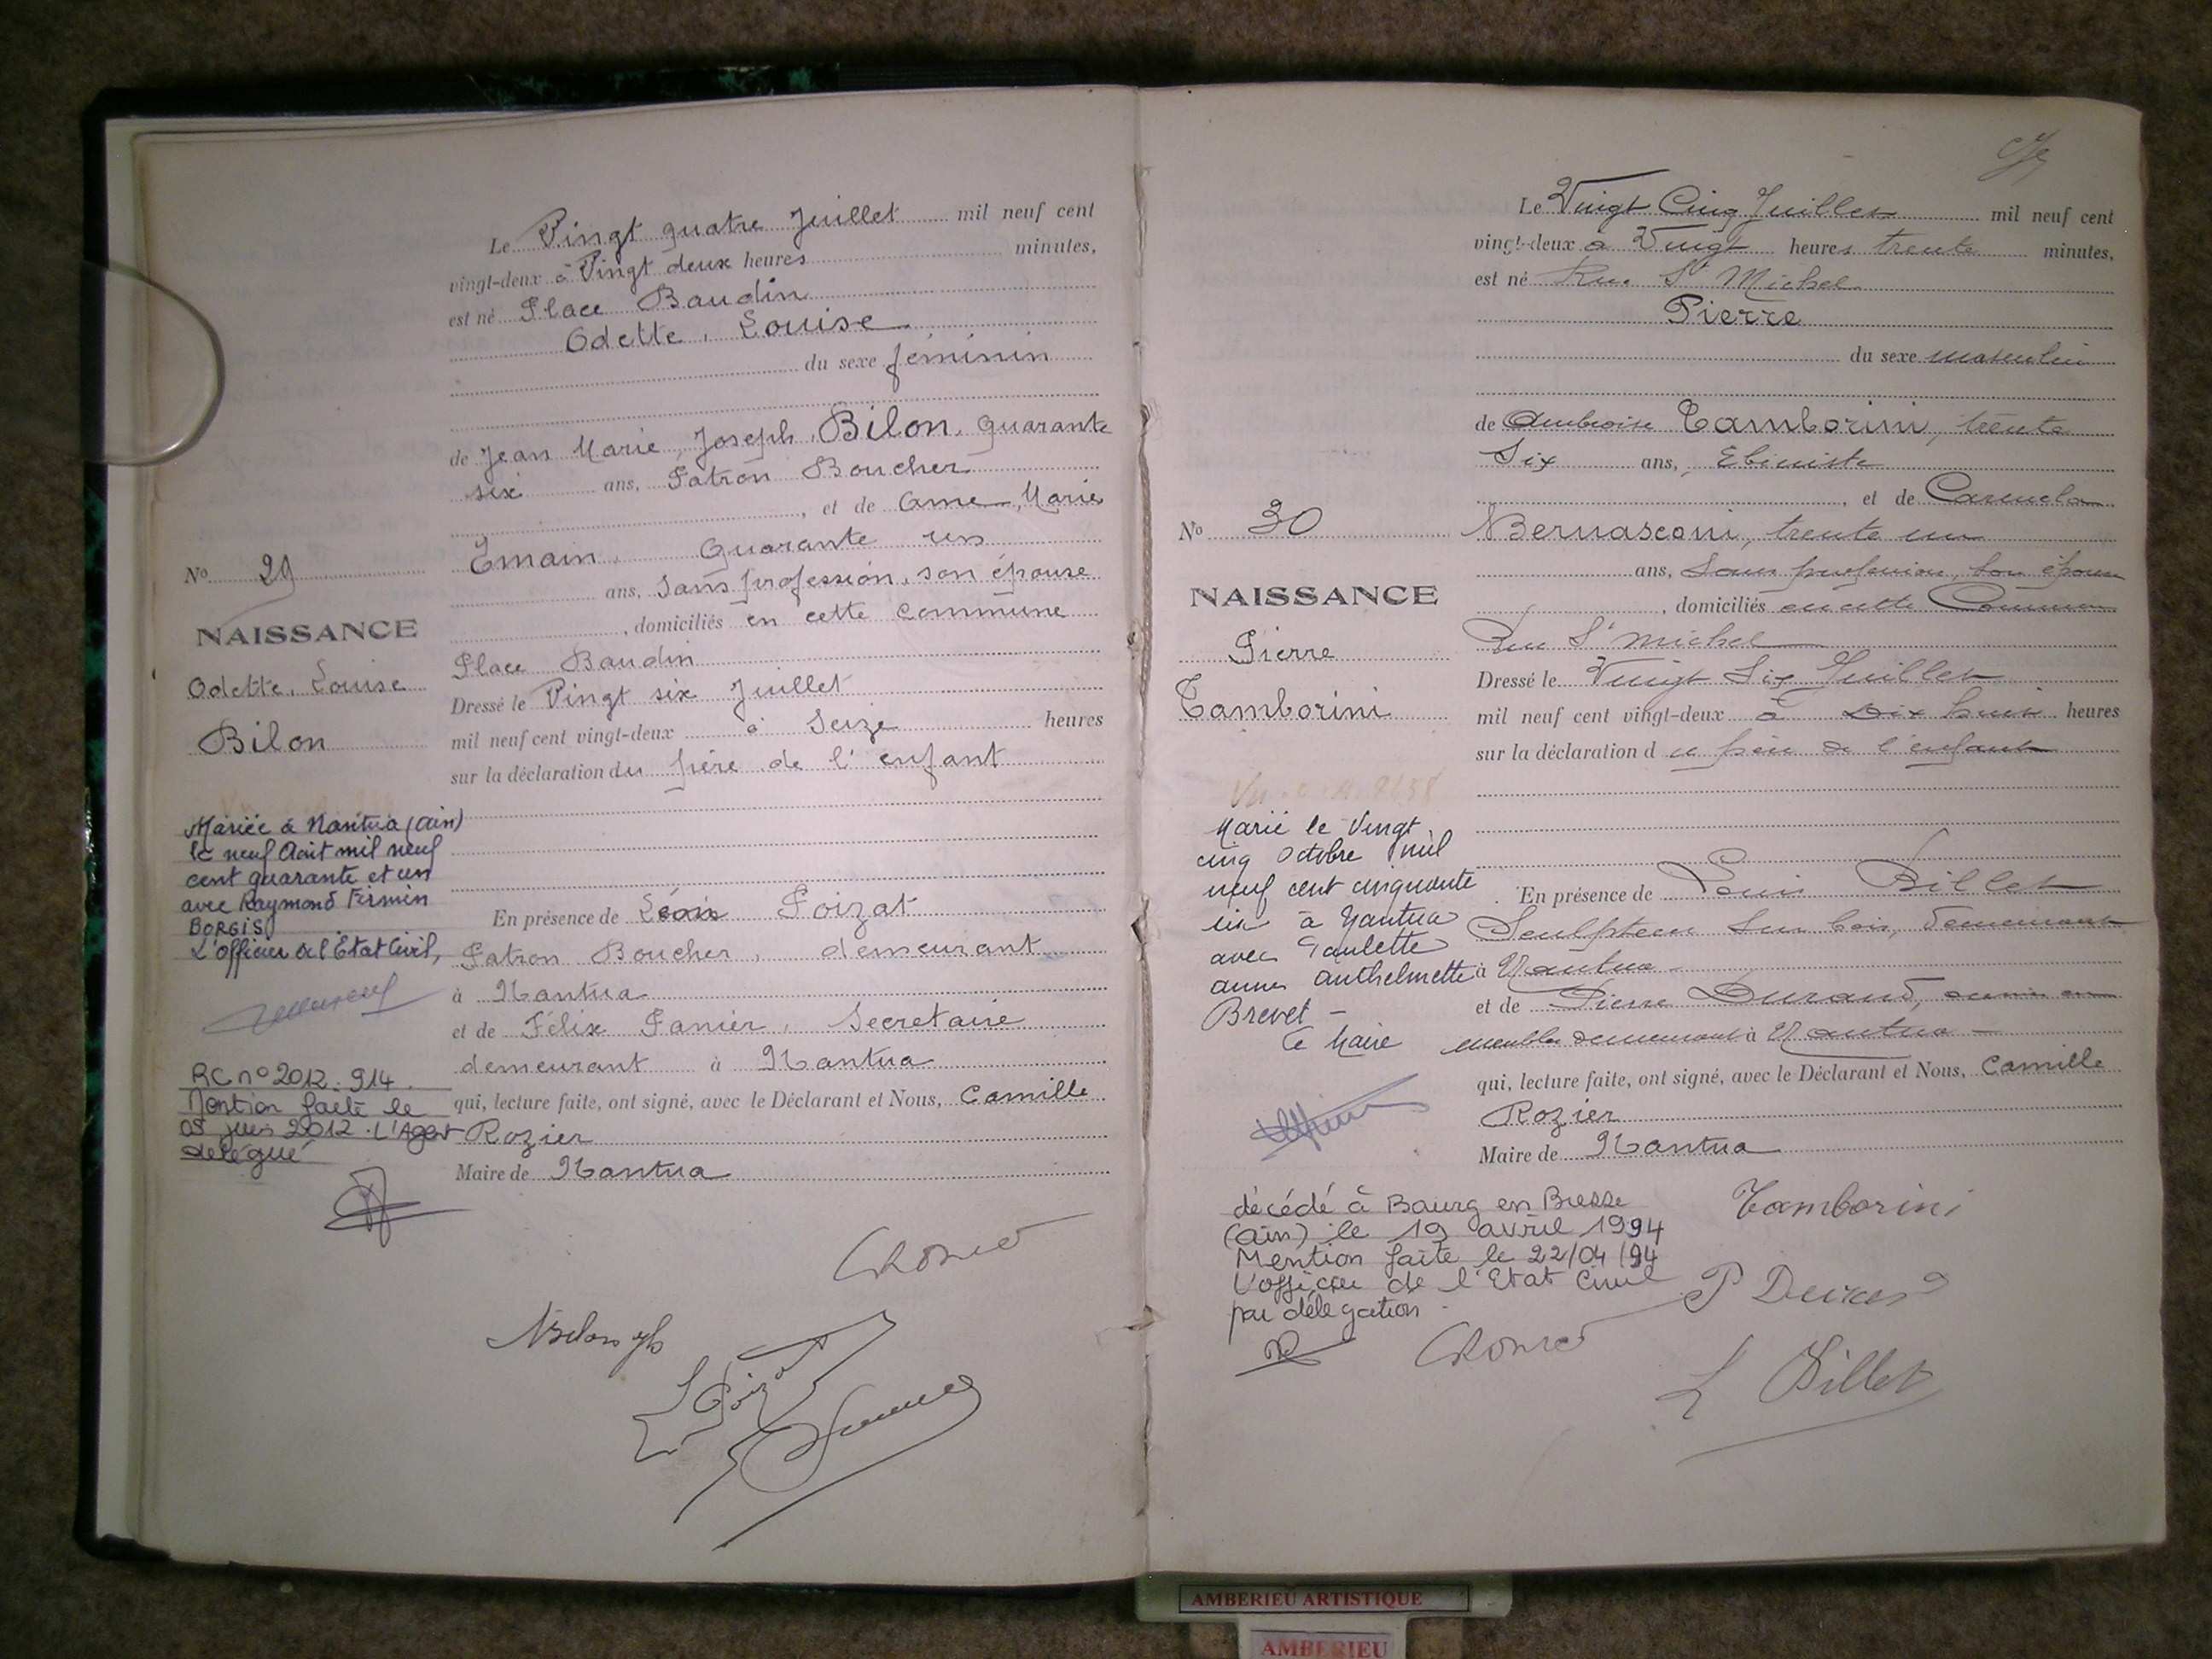 Le Vingt quatre Juillet mil neuf cent
vingt-deux à Vingt deux heures minutes,
est né Place Baudin
Odette, Louise
du sexe féminin
de Jean Marie, Joseph, Bilon, quarante
six ans, Patron Boucher
, et de Anne, Marie
Emain, Quarante un
ans, sans profession, son épouse
, domiciliés en cette commune
Place Baudin
Dressé le Vingt six Juillet
mil neuf cent vingt-deux à Seize heures
sur la déclaration du père de l'enfant
En présence de Poizat
Patron Boucher, demeurant
à Nantua
et de Félix Panier, Secretaire
demeurant à Nantua
qui, lecture faite, ont signé, avec le Déclarant et Nous, Camille
Rozier
Maire de Nantua
No 29
NAISSANCE
Odette, Louise
Bilon
Mariée à Nantua (Ain)
le neuf Août mil neuf
cent quarante et un
avec Raymond Firmin
BORGIS
L'officier de l'Etat Civil,
RC n° 2012.914
Mention faite le
05 juin 2012. L'Agent
délégué
Le Vingt Cinq Juillet mil neuf cent
vingt-deux à Vingt heures trente minutes,
est né Rue St Michel
Pierre
du sexe masculin
de Ambroise Tamborini, trente
Six ans, Ebéniste
, et de Carmela
Bernasconi, trente un
ans, Sans profession, son épouse
, domiciliés en cette Commune
Rue St Michel
Dressé le Vingt Six Juillet
mil neuf cent vingt-deux à Dix huit heures
sur la déclaration du père de l'enfant
En présence de Louis Billet
Sculpteur sur bois, demeurant
à Nantua
et de Pierre Durand, ouvrier en
meubles demeurant à Nantua
qui, lecture faite, ont signé, avec le Déclarant et Nous, Camille
Rozier
Maire de Nantua
No 30
NAISSANCE
Pierre
Tamborini
Marié le Vingt
cinq Octobre mil
neuf cent cinquante
un à Nantua
avec Paulette
Anne Anthelmette
Brevet -
Le Maire
décédé à Bourg en Bresse
(Ain) le 19 avril 1994
Mention faite le 22/04/94
L'officier de l'Etat Civil
par délégation
Tamborini
P Durand
L Billet
AMBERIEU ARTISTIQUE
AMBERIEU